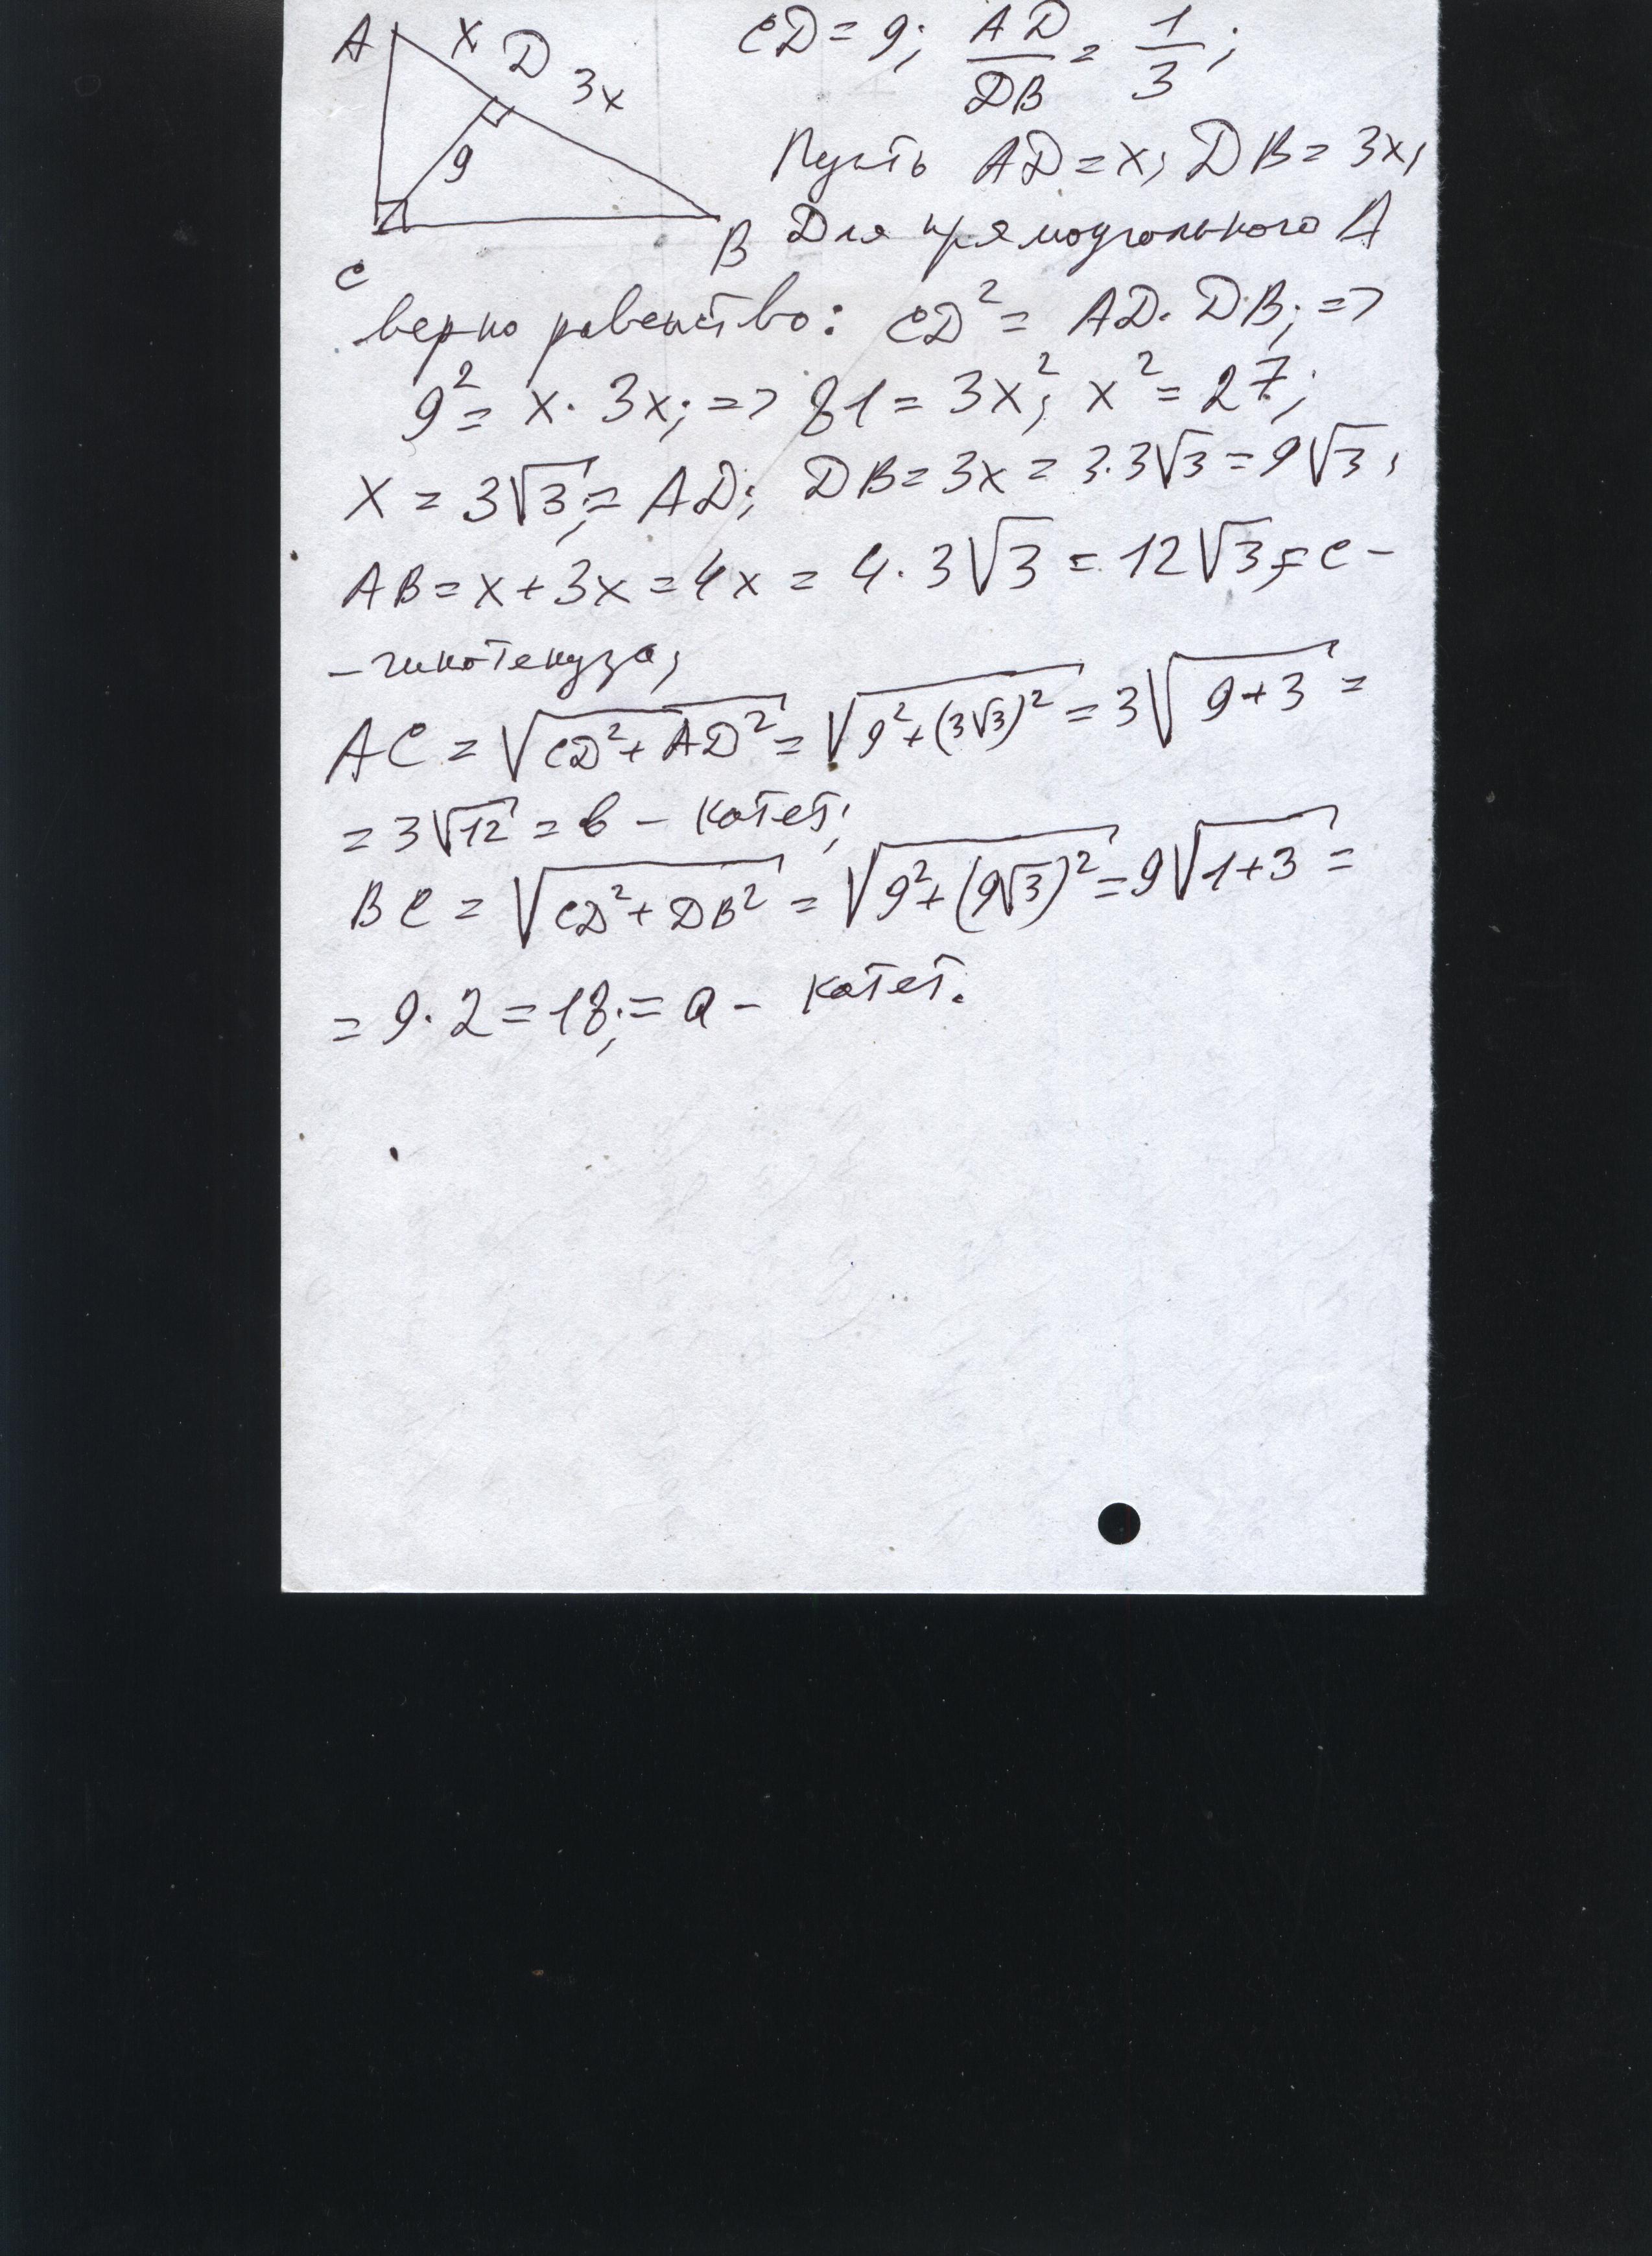 A x D 3x
9
C B
CD = 9; AD/DB = 1/3;
Пусть AD = x, DB = 3x,
Для прямоугольного Δ
верно равенство: CD² = AD · DB; =>
9² = x · 3x; => 81 = 3x²; x² = 27;
x = 3√3; = AD; DB = 3x = 3·3√3 = 9√3,
AB = x + 3x = 4x = 4 · 3√3 = 12√3 = c –
– гипотенуза,
AC = √(CD² + AD²) = √(9² + (3√3)²) = 3√(9+3) =
= 3√12 = b – катет;
BC = √(CD² + DB²) = √(9² + (9√3)²) = 9√(1+3) =
= 9 · 2 = 18; = a – катет.